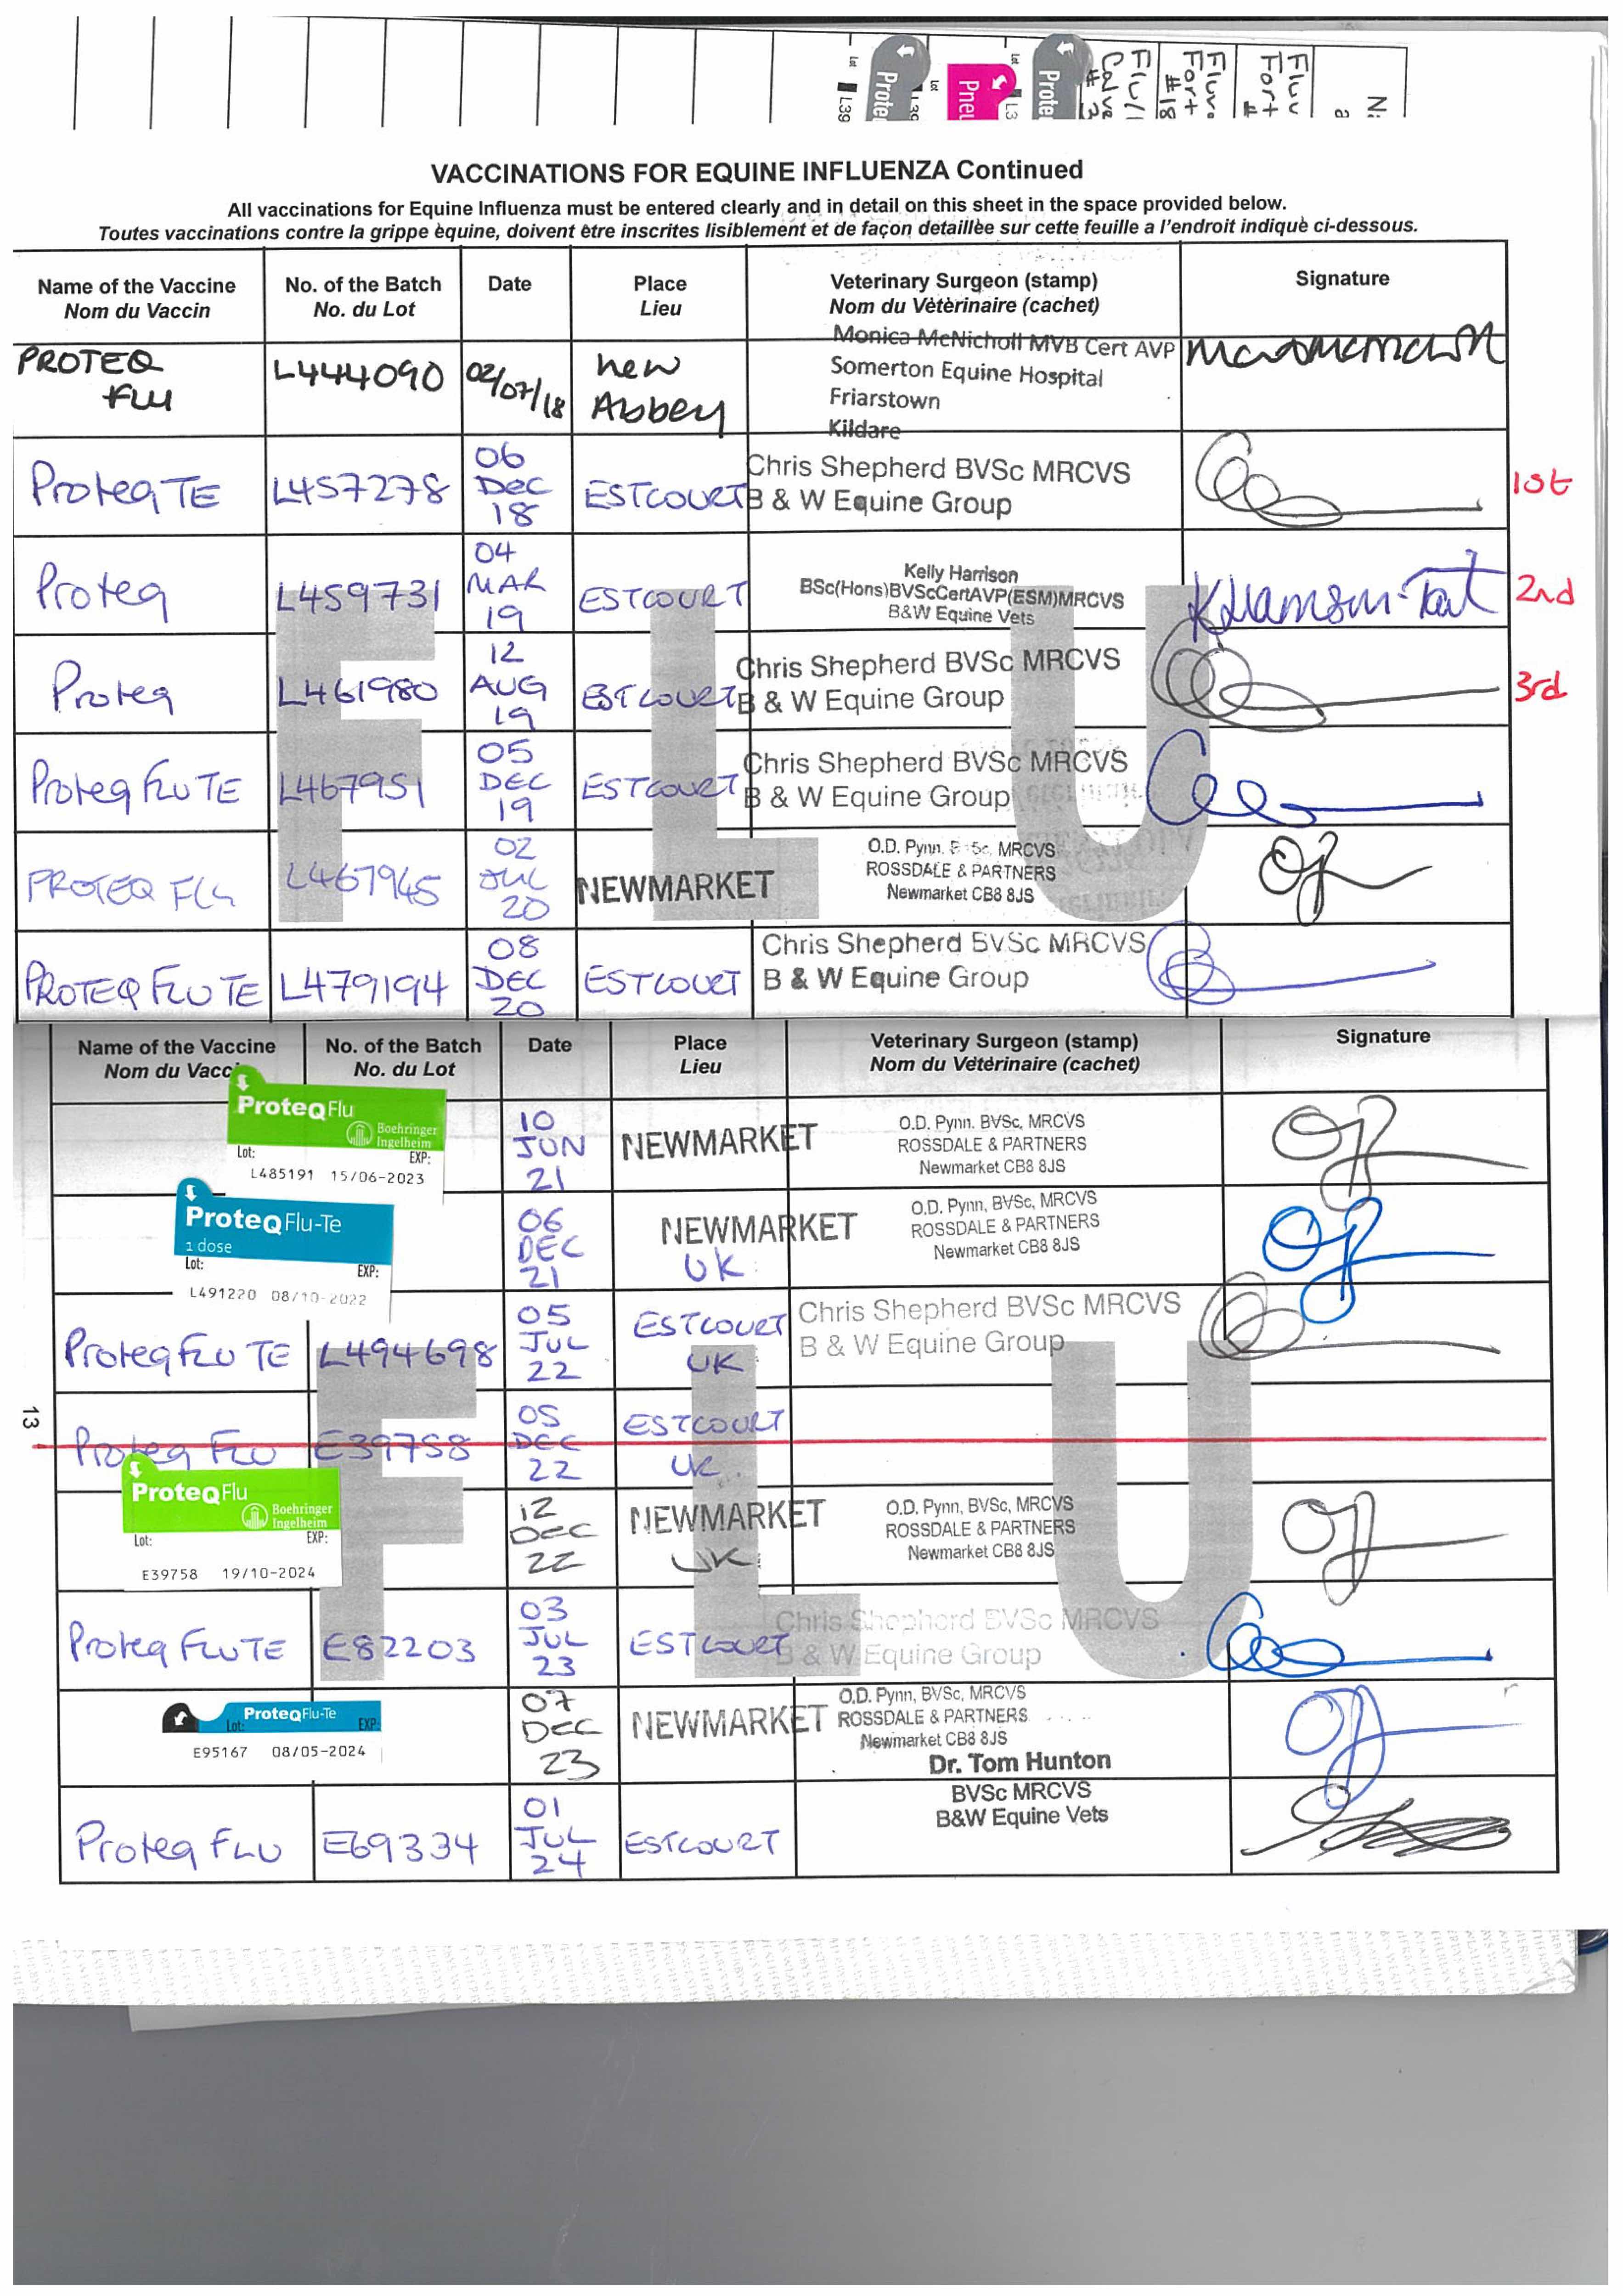 Fluv Fort #
Fluva Fort #18
Flu/ Calve #2
Prote
Pneu
Prote
Lot
Lot
Lot
L39
VACCINATIONS FOR EQUINE INFLUENZA Continued
All vaccinations for Equine Influenza must be entered clearly and in detail on this sheet in the space provided below.
Toutes vaccinations contre la grippe èquine, doivent ètre inscrites lisiblement et de façon detaillèe sur cette feuille a l'endroit indiquè ci-dessous.
Name of the Vaccine No. of the Batch Date Place Veterinary Surgeon (stamp) Signature
Nom du Vaccin No. du Lot Lieu Nom du Vètèrinaire (cachet)
PROTEQ FLU L444090 02/07/18 New Abbey
Monica McNicholl MVB Cert AVP
Somerton Equine Hospital
Friarstown
Kildare
Proteq TE L457278 06 DEC 18 ESTCOURT
Chris Shepherd BVSc MRCVS
B & W Equine Group
1st
Proteq L459731 04 MAR 19 ESTCOURT
Kelly Harrison
BSc(Hons)BVScCertAVP(ESM)MRCVS
B&W Equine Vets
2nd
Proteq L461980 12 AUG 19 ESTCOURT
Chris Shepherd BVSc MRCVS
B & W Equine Group
3rd
Proteq FLU TE L467951 05 DEC 19 ESTCOURT
Chris Shepherd BVSc MRCVS
B & W Equine Group
PROTEQ FLU L467945 02 JUL 20 NEWMARKET
O.D. Pynn, BVSc, MRCVS
ROSSDALE & PARTNERS
Newmarket CB8 8JS
PROTEQ FLU TE L479194 08 DEC 20 ESTCOURT
Chris Shepherd BVSc MRCVS
B & W Equine Group
FLU
Name of the Vaccine No. of the Batch Date Place Veterinary Surgeon (stamp) Signature
Nom du Vacci No. du Lot Lieu Nom du Vétèrinaire (cachet)
ProteqFlu
Boehringer Ingelheim
Lot: EXP:
L485191 15/06-2023
10 JUN 21 NEWMARKET
O.D. Pynn. BVSc, MRCVS
ROSSDALE & PARTNERS
Newmarket CB8 8JS
ProteqFlu-Te
1 dose
Lot: EXP:
L491220 08/10-2022
06 DEC 21 NEWMARKET UK
O.D. Pynn, BVSc, MRCVS
ROSSDALE & PARTNERS
Newmarket CB8 8JS
Proteq FLU TE L494698 05 JUL 22 ESTCOURT UK
Chris Shepherd BVSc MRCVS
B & W Equine Group
Proteq FLU E39758 05 DEC 22 ESTCOURT UK
13
ProteqFlu
Boehringer Ingelheim
Lot: EXP:
E39758 19/10-2024
12 DEC 22 NEWMARKET UK
O.D. Pynn, BVSc, MRCVS
ROSSDALE & PARTNERS
Newmarket CB8 8JS
Proteq FLU TE E82203 03 JUL 23 ESTCOURT
Chris Shepherd BVSc MRCVS
B & W Equine Group
ProteqFlu-Te
Lot: EXP
E95167 08/05-2024
07 DEC 23 NEWMARKET
O.D. Pynn, BVSc, MRCVS
ROSSDALE & PARTNERS
Newmarket CB8 8JS
Proteq FLU E69334 01 JUL 24 ESTCOURT
Dr. Tom Hunton
BVSc MRCVS
B&W Equine Vets
FLU